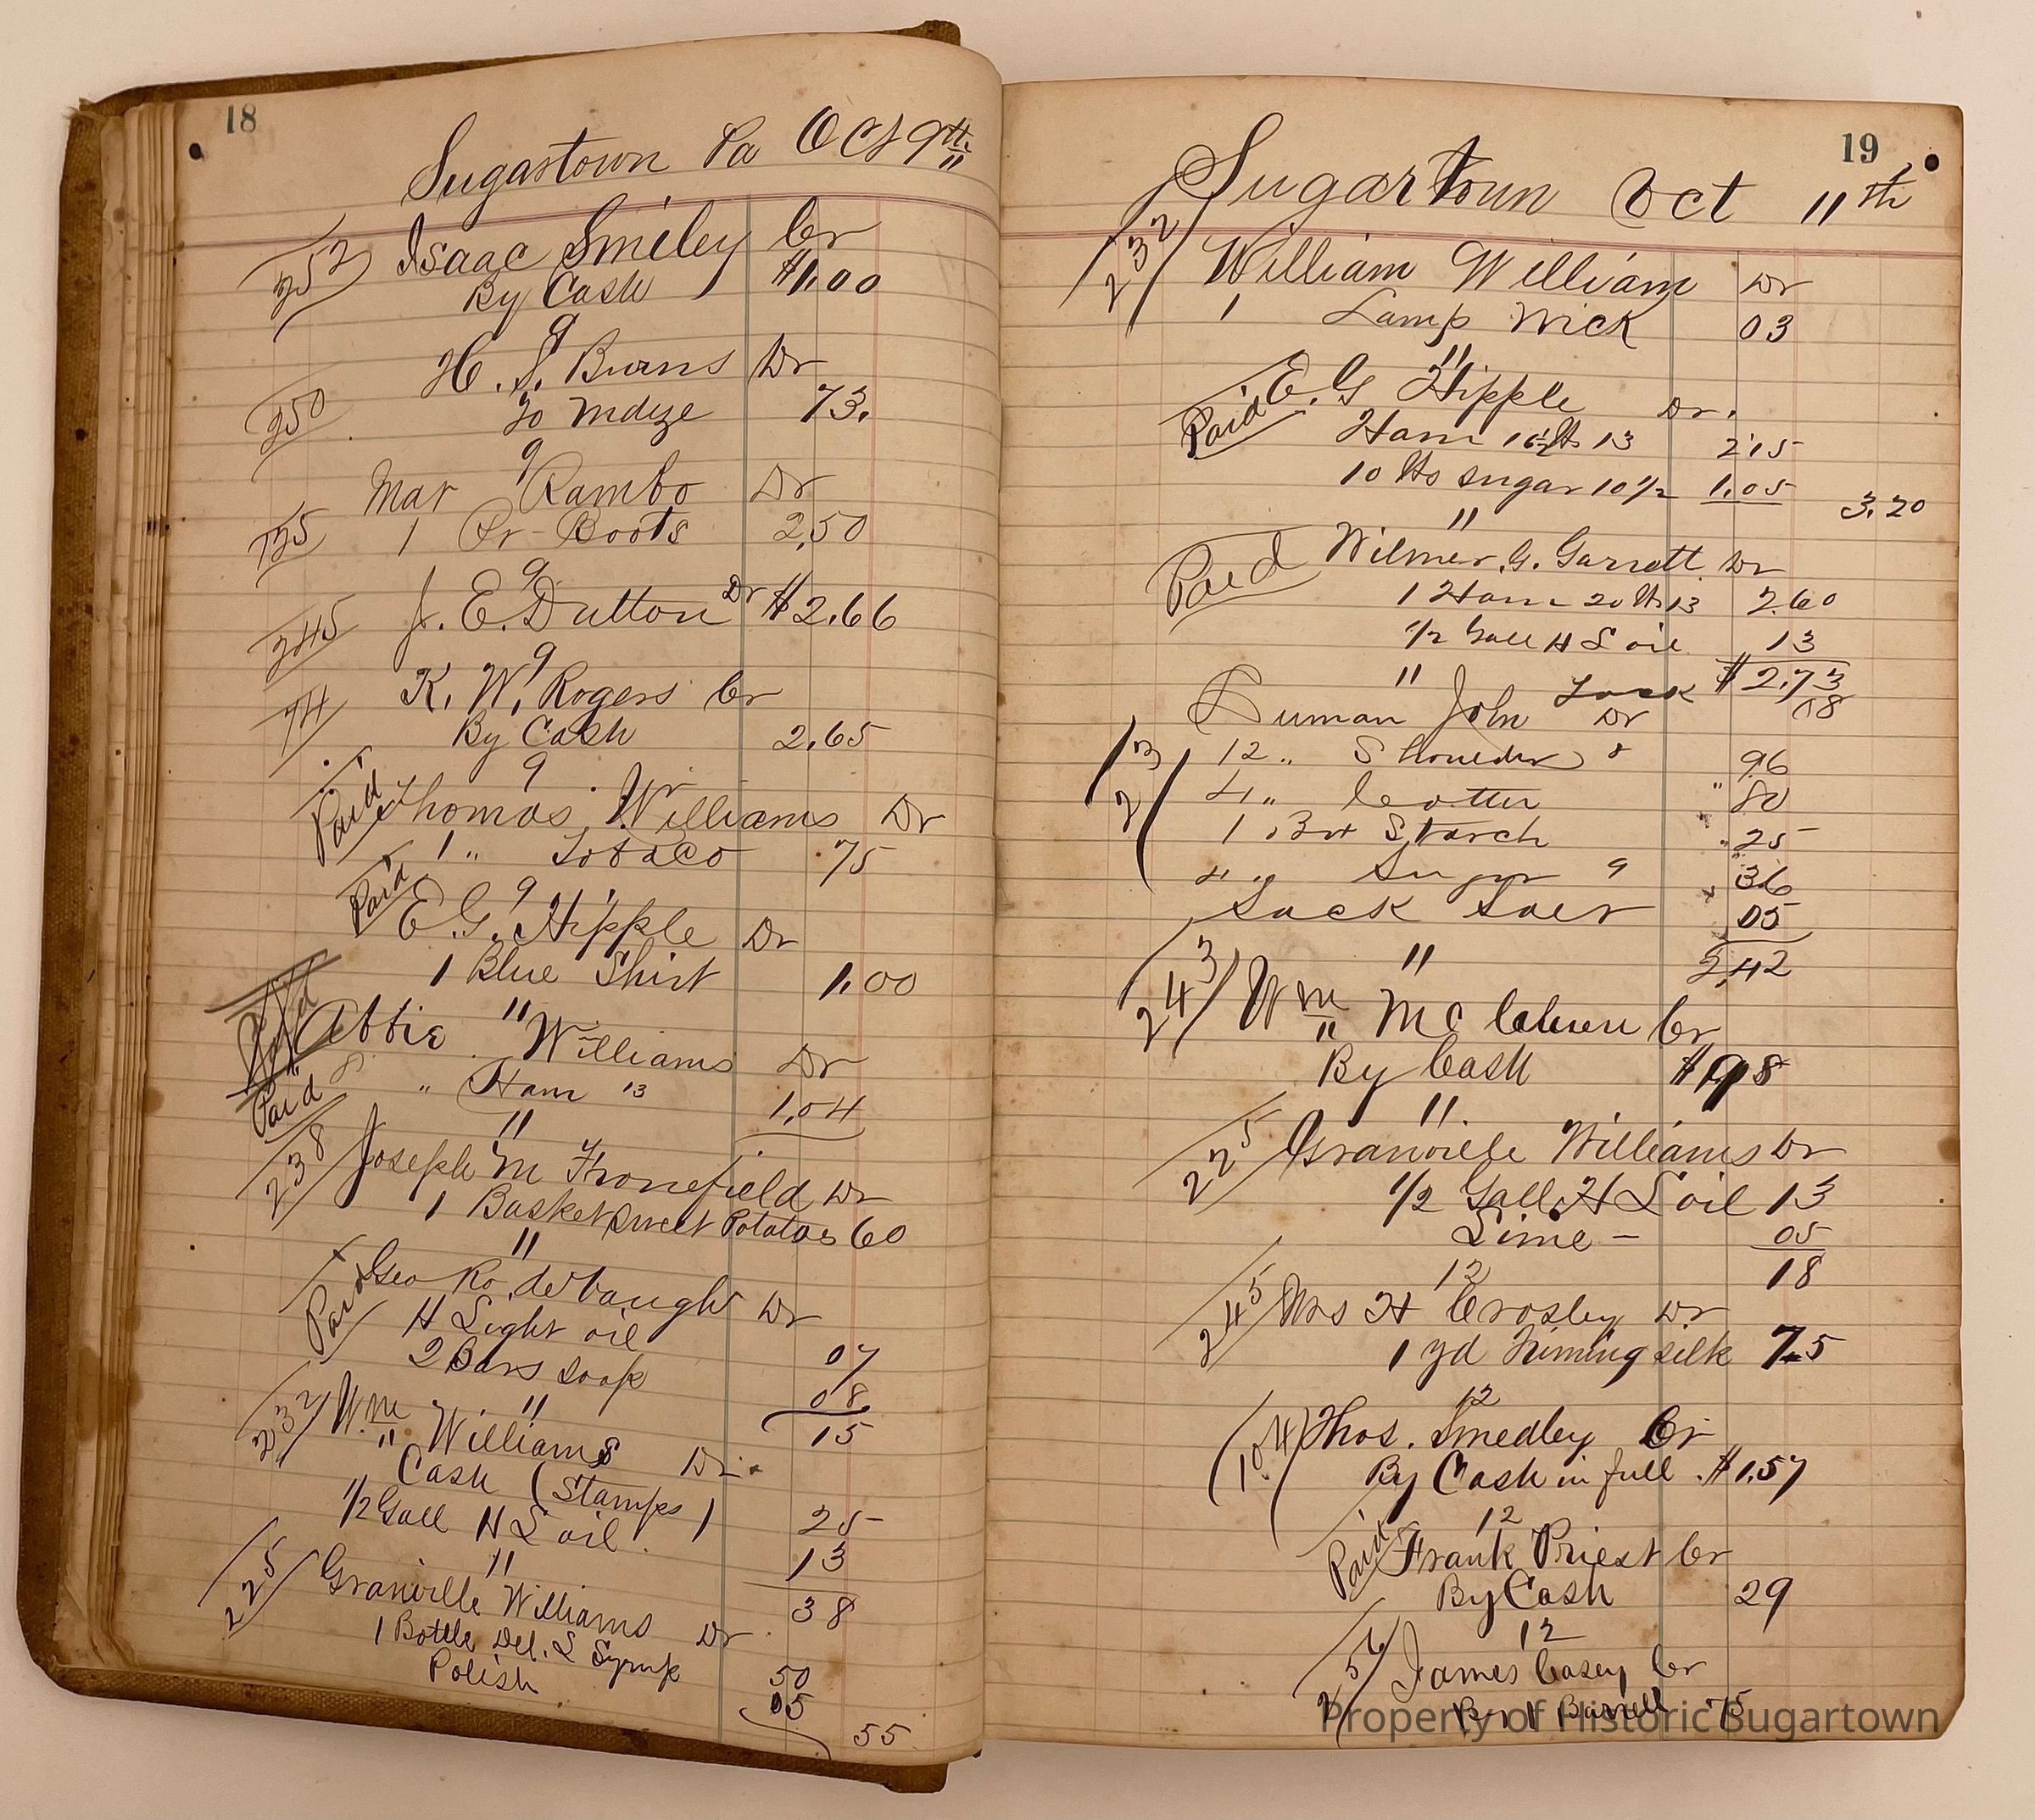 18
Sugartown Pa Oct 9th
252 Isaac Smiley Cr
By Cash $1.00
9
250 H. S. Burns Dr
To Mdze 73.
9
Mar Rambo Dr
125 1 Pr Boots 2.50
9
245 J. E. Dutton Dr $2.66
9
74 K. W. Rogers Cr
By Cash 2.65
9
Paid Thomas Wr Williams Dr
1 " Tobaco 75
9
Paid E. G. Hipple Dr
1 Blue Shirt 1.00
"
Paid Abbie Williams Dr
Paid 8 " Ham 13 1.04
"
238 Joseph M Fronefield Dr
1 Basket Sweet Potatoes 60
"
Paid Geo Ro debaugh Dr
H Light oil 07
2 Bars soap 08
15
"
232 Wm Williams Dr
Cash (Stamps) 25
1/2 Gall H L oil 13
38
"
225 Granville Williams Dr
1 Bottle Del. L Syrup 50
Polish 05
55
19
Sugartoun Oct 11th
232 William William Dr
1 Lamp Wick 03
"
Paid E. G Hipple Dr.
Ham 13 2.15
10 lbs sugar 10 1/2 1.05 3.20
"
Paid Wilmer. G. Garrett Dr
1 Ham 20 lbs 13 2.60
1/2 Gall H L oil 13
$2.73
"
John Dr 08
213 12 " Shoulder 8 96
4 " 80
1 Box Starch 25
4 " Sugar 9 36
Sack 05
2,42
"
243 Wm Mc Cr
By Cash $ 98
"
225 Granville Williams Dr
1/2 Gall. H L oil 13
Lime - 05
18
12
245 Mrs H Crosley Dr
1 yd Triming silk 75
12
104 Thos. Smedley Cr
By Cash in full $1.57
12
Paid Frank Priest Cr
By Cash 29
12
256 James Casey Cr
By 1 Barrell 75
Property of Historic Sugartown